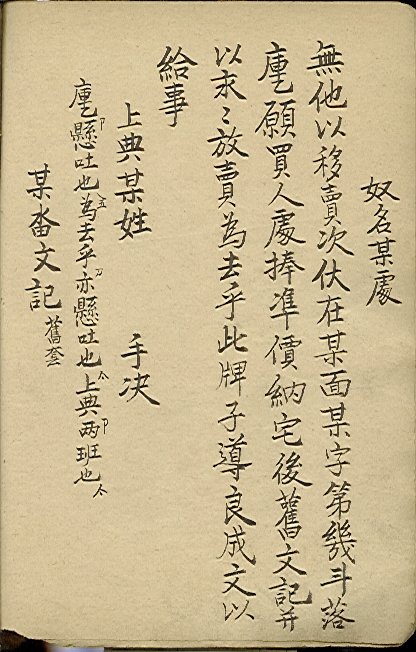 奴名某處
無他以移賣次伏在某面某字第幾斗落
庫乙願買人處捧準價納宅後舊文記并
以求〻放賣為去乎此牌子導良成文以
給事
上典某姓 手决
庫乙卩懸吐也為五去乎刀亦懸吐也𠆢上典两卩班也𠆢
某畓文記 舊套